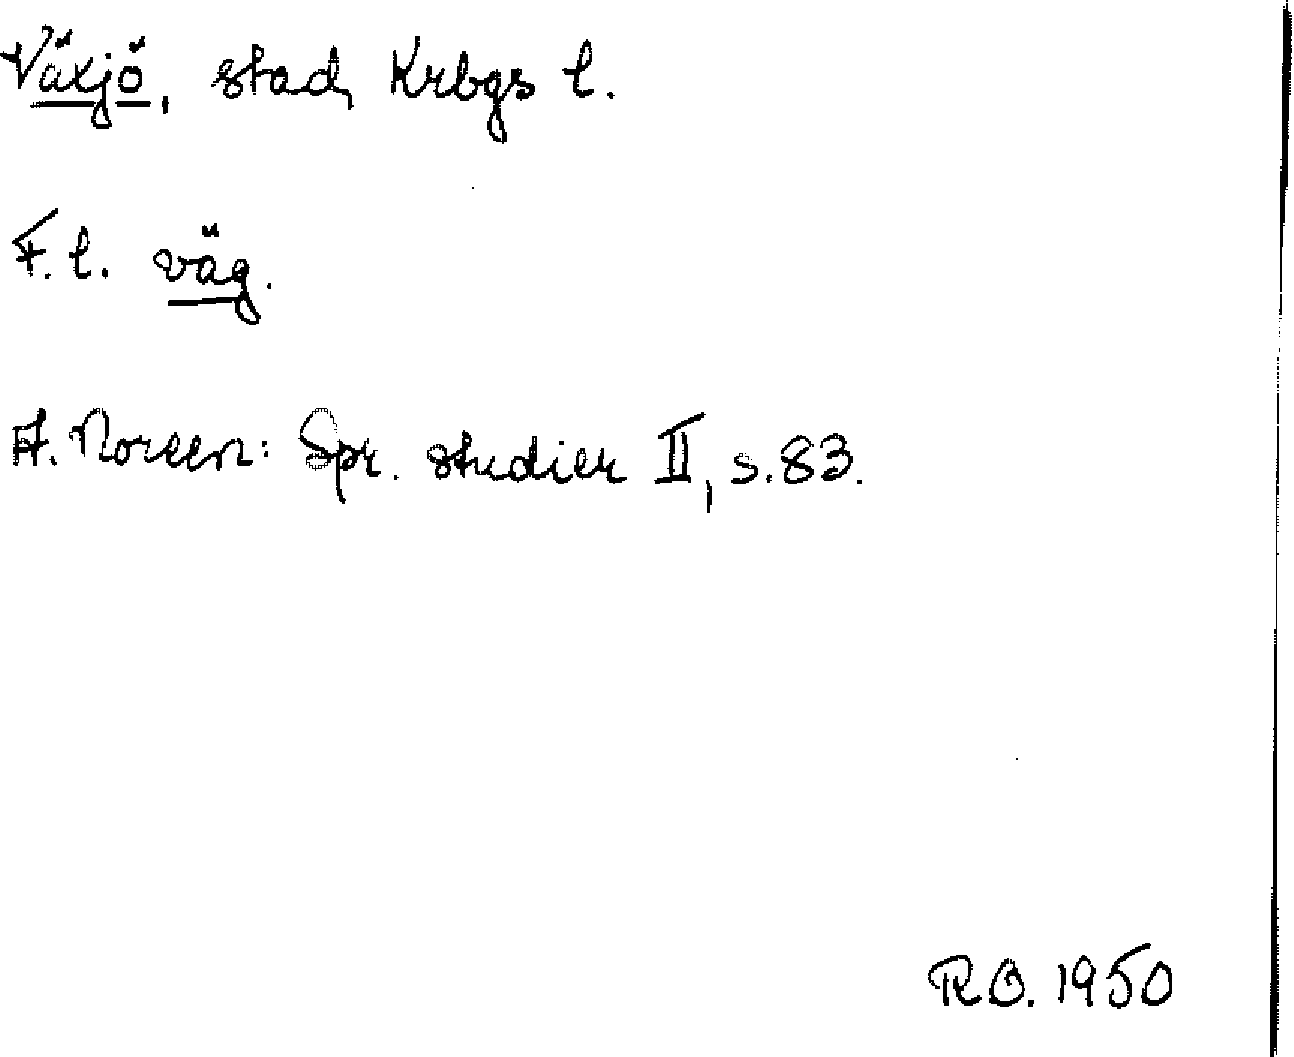 Växjö, stad, Krbgs l.
F. l. väg.
A. Noreen: Spr. studier II, s. 83.
R.O. 1950